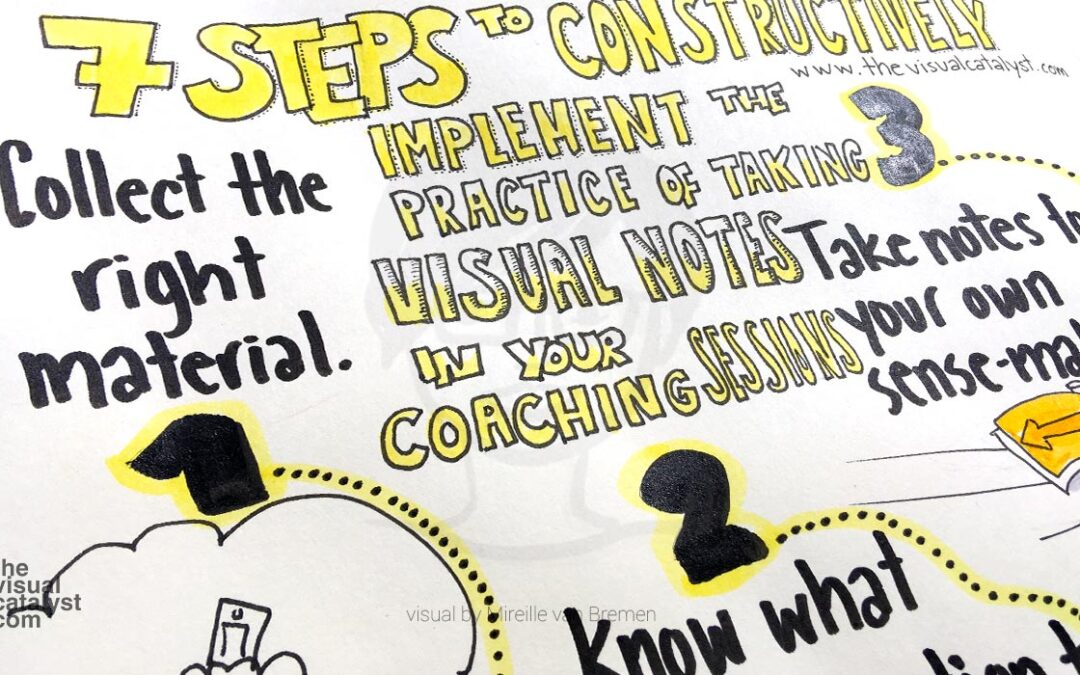 7 STEPS TO CONSTRUCTIVELY
www.thevisualcatalyst.com
IMPLEMENT THE
PRACTICE OF TAKING
VISUAL NOTES
IN YOUR
COACHING SESSIONS
Collect the
right
material.
1
2
Know what
3
Take notes
your own
the
visual
catalyst
.com
visual by Mireille van Bremen